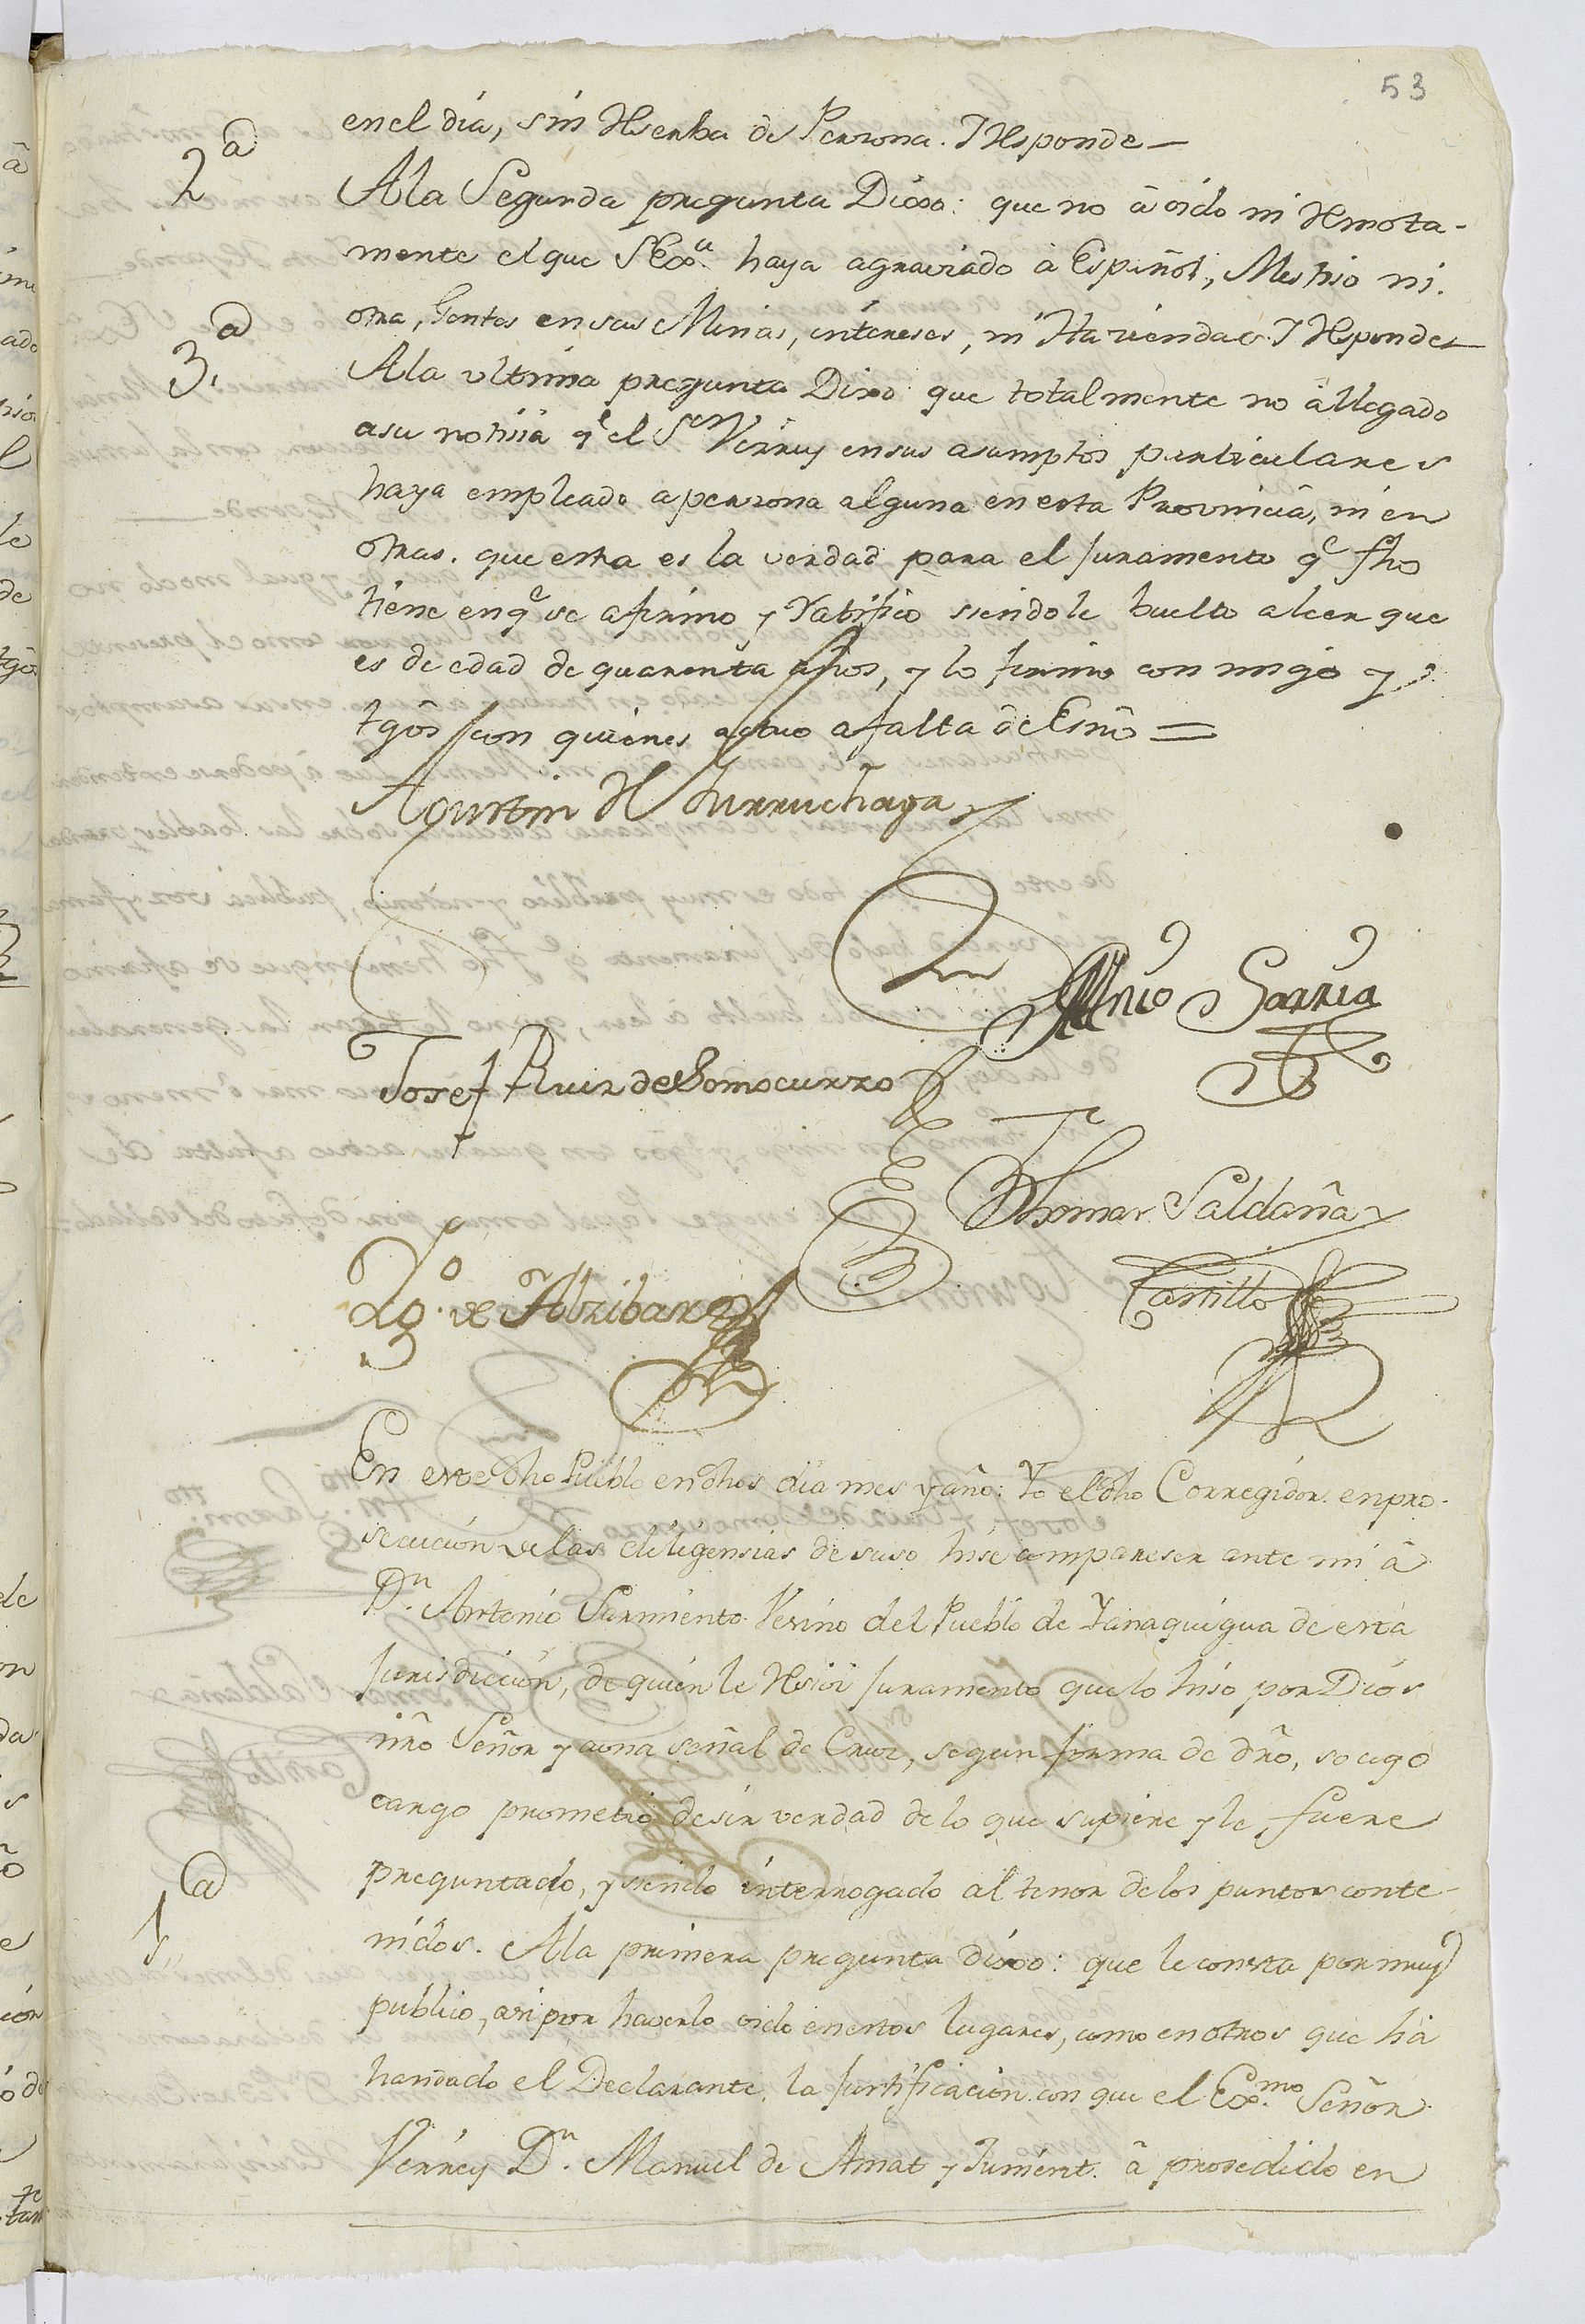 53
en el dia, sin Reserba de Perzona. Y Responde
2ª
A la Segunda pregunta Dixo: que no â oido ni Remota-
mente el que S Exª. haya agraviado à Español, Mestiso ni.
otra, Gentes en sus Minas, intereses, ni Haziendas. Y Responde
3.ª
A la vltima pregunta Dixo que totalmente no â llegado
a su notisia qe el Sor Virrey en sus asumptos particulares
haya empleado a perzona alguna en esta Provincia, ni en
otras. que esta es la verdad para el Juramento qe fho
tiene en qe se afirmo y Ratifico siendole buelto a leer que
es de edad de quarenta años, y lo firmo con migo y
tgos con quienes actuo a falta de Esno =
Agustin de Iurruchaga
Antnio Sarria
Josef Ruiz de Somocurzo
Thomas Saldaña y
Castillo
Dgo. de Albribar
En este dho Pueblo en dhos dia mes y año: Yo el dho Corregidor. en pro-
secucion de las diligensias de suso hise compareser ante mi â
Dn. Antonio Sarmiento Vesino del Pueblo de Yanaquigua de esta
Jurisdiccion, de quien le Resivi Juramento que lo hiso por Dios
nro Señor y a una señal de Cruz, segun forma de dro, so cuyo
cargo prometio desir verdad de lo que supiere y le fuere
preguntado, y siendo interrogado al tenor de los puntos conte-
1ª
nidos. A la primera pregunta dixo: que le consta por muy
publico, asi por haverlo oido en estos lugares, como en otros que ha
handado el Declarante, la Justificacion con que el Exmo. Señor
Virrey Dn. Manuel de Amat y Junient. â prosedido en